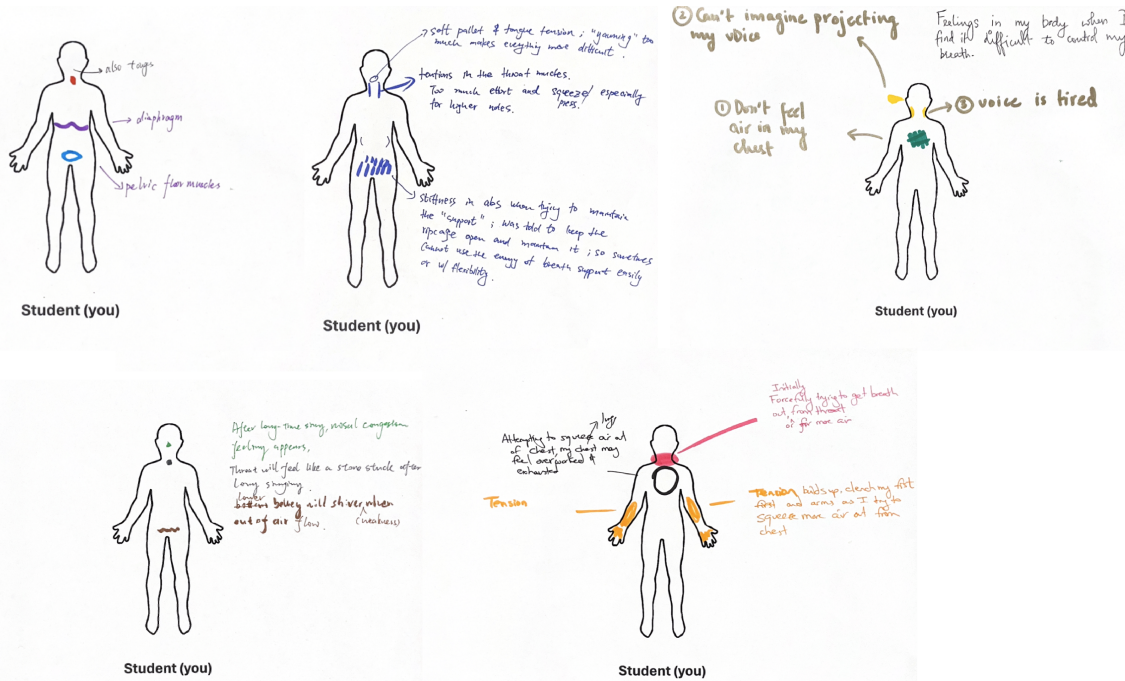 also tags
diaphragm
pelvic floor muscles.
Student (you)
soft pallet & tongue tension ; "yawning" too
much makes everything more difficult.
tentions in the throat muscles.
Too much effort and squeeze/ especially
press,
for higher notes.
stiffness in abs when trying to maintain
the "support" ; was told to keep the
ripcage open and maintain it ; so sometimes
Cannot use the energy of breath support easily
or w/ flexibility.
Student (you)
② Can't imagine projecting
my voice
Feelings in my body when I
find it difficult to control my
breath.
① Don't feel
air in my
chest
③ voice is tired
Student (you)
After long-time sing, nosal congestion
feeling appears,
Throat will feel like a stone stuck after
Long singing.
lower
belley will shiver, when
out of air flow. (weakness)
Student (you)
Initially
Forcefully trying to get breath
out, from throat
or for more air
lungs
Attempting to squeeze air out
of chest, my chest may
feel overworked &
exhausted
Tension
Tension builds up. clench my fist
fist and arms as I try to
squeeze more air out from
chest
Student (you)